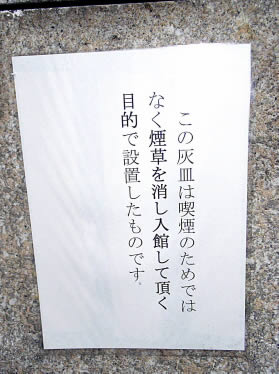 この灰皿は喫煙のためでは
なく煙草を消し入館して頂く
目的で設置したものです.